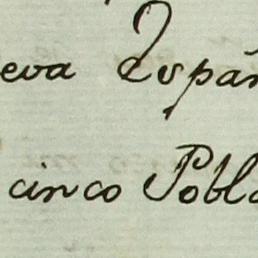 eva Españ
cinco Pobla